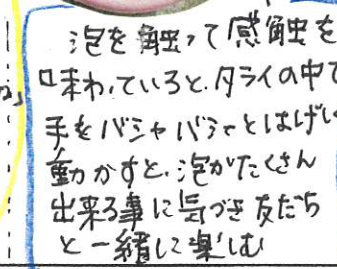 泡を触って感触を
味わっていると、タライの中で
手をバシャバシャとはげしく
動かすと、泡がたくさん
出来る事に気づき友だち
と一緒に楽しむ